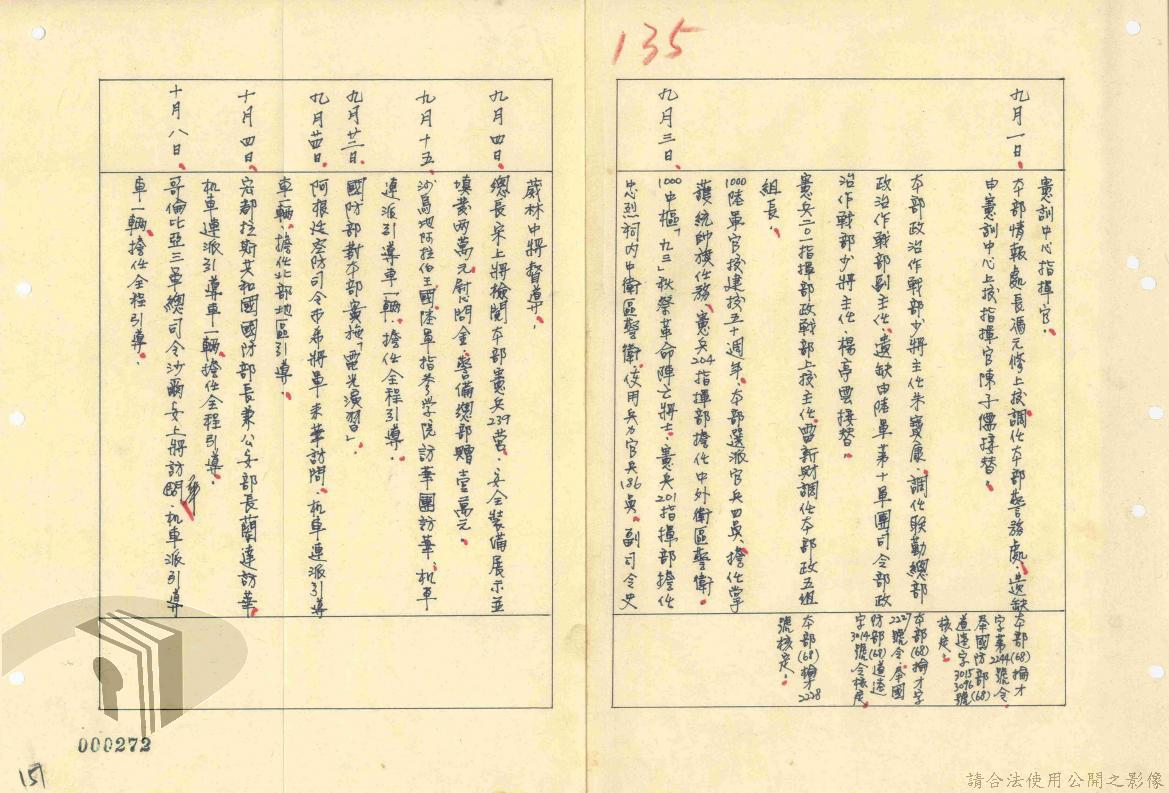 135
憲訓中心指揮官。
九月一日、
本部情報處長馮元修上校調任本部警務處、遺缺
由憲訓中心上校指揮官陳子儒接替。
本部政治作戰部少將主任朱寶康、調任聯勤總部
政治作戰部副主任、遺缺由陸軍第十軍團司令部政
治作戰部少將主任、楊亭雲接替。
憲兵二〇一指揮部政戰部上校主任雷新財調任本部政五組
組長、
1000陸軍官校建校五十週年、本部選派官兵四員、擔任掌
護統帥旗任務、憲兵204指揮部擔任中外衛區警衛。
九月三日、
1000中樞「九三」秋祭革命陣亡將士、憲兵201指揮部擔任
忠烈祠內中衛區警衛、使用兵力官兵186員、副司令史
本部(68)掄才
字第2244號令
奉國防部(68)
道遠字3015
3096號
核定。
本部(68)掄才字
2227號令奉國
防部(68)道遠
字3014號令核定
本部(68)掄才2228
號核定。
葳林中將督導。
九月四日、
總長宋上將檢閱本部憲兵239營、安全裝備展示並
填發兩萬元慰問金、警備總部贈壹萬元。
九月十五、
沙烏地阿拉伯王國、陸軍指參學院訪華團訪華、机車
連派引導車一輛、擔任全程引導。
九月廿三日、
國防部對本部實施「電光演習」。
九月廿四日、
阿根廷空防司令布弗將軍來華訪問、机車連派引導
車一輛、擔任北部地區引導。
十月四日、
宏都拉斯共和國國防部長兼公安部長蘭達訪華
机車連派引導車一輛擔任全程引導。
十月八日、
哥倫比亞三軍總司令沙爾安上將訪問華、机車派引導
車一輛、擔任全程引導。
000272
151
請合法使用公開之影像